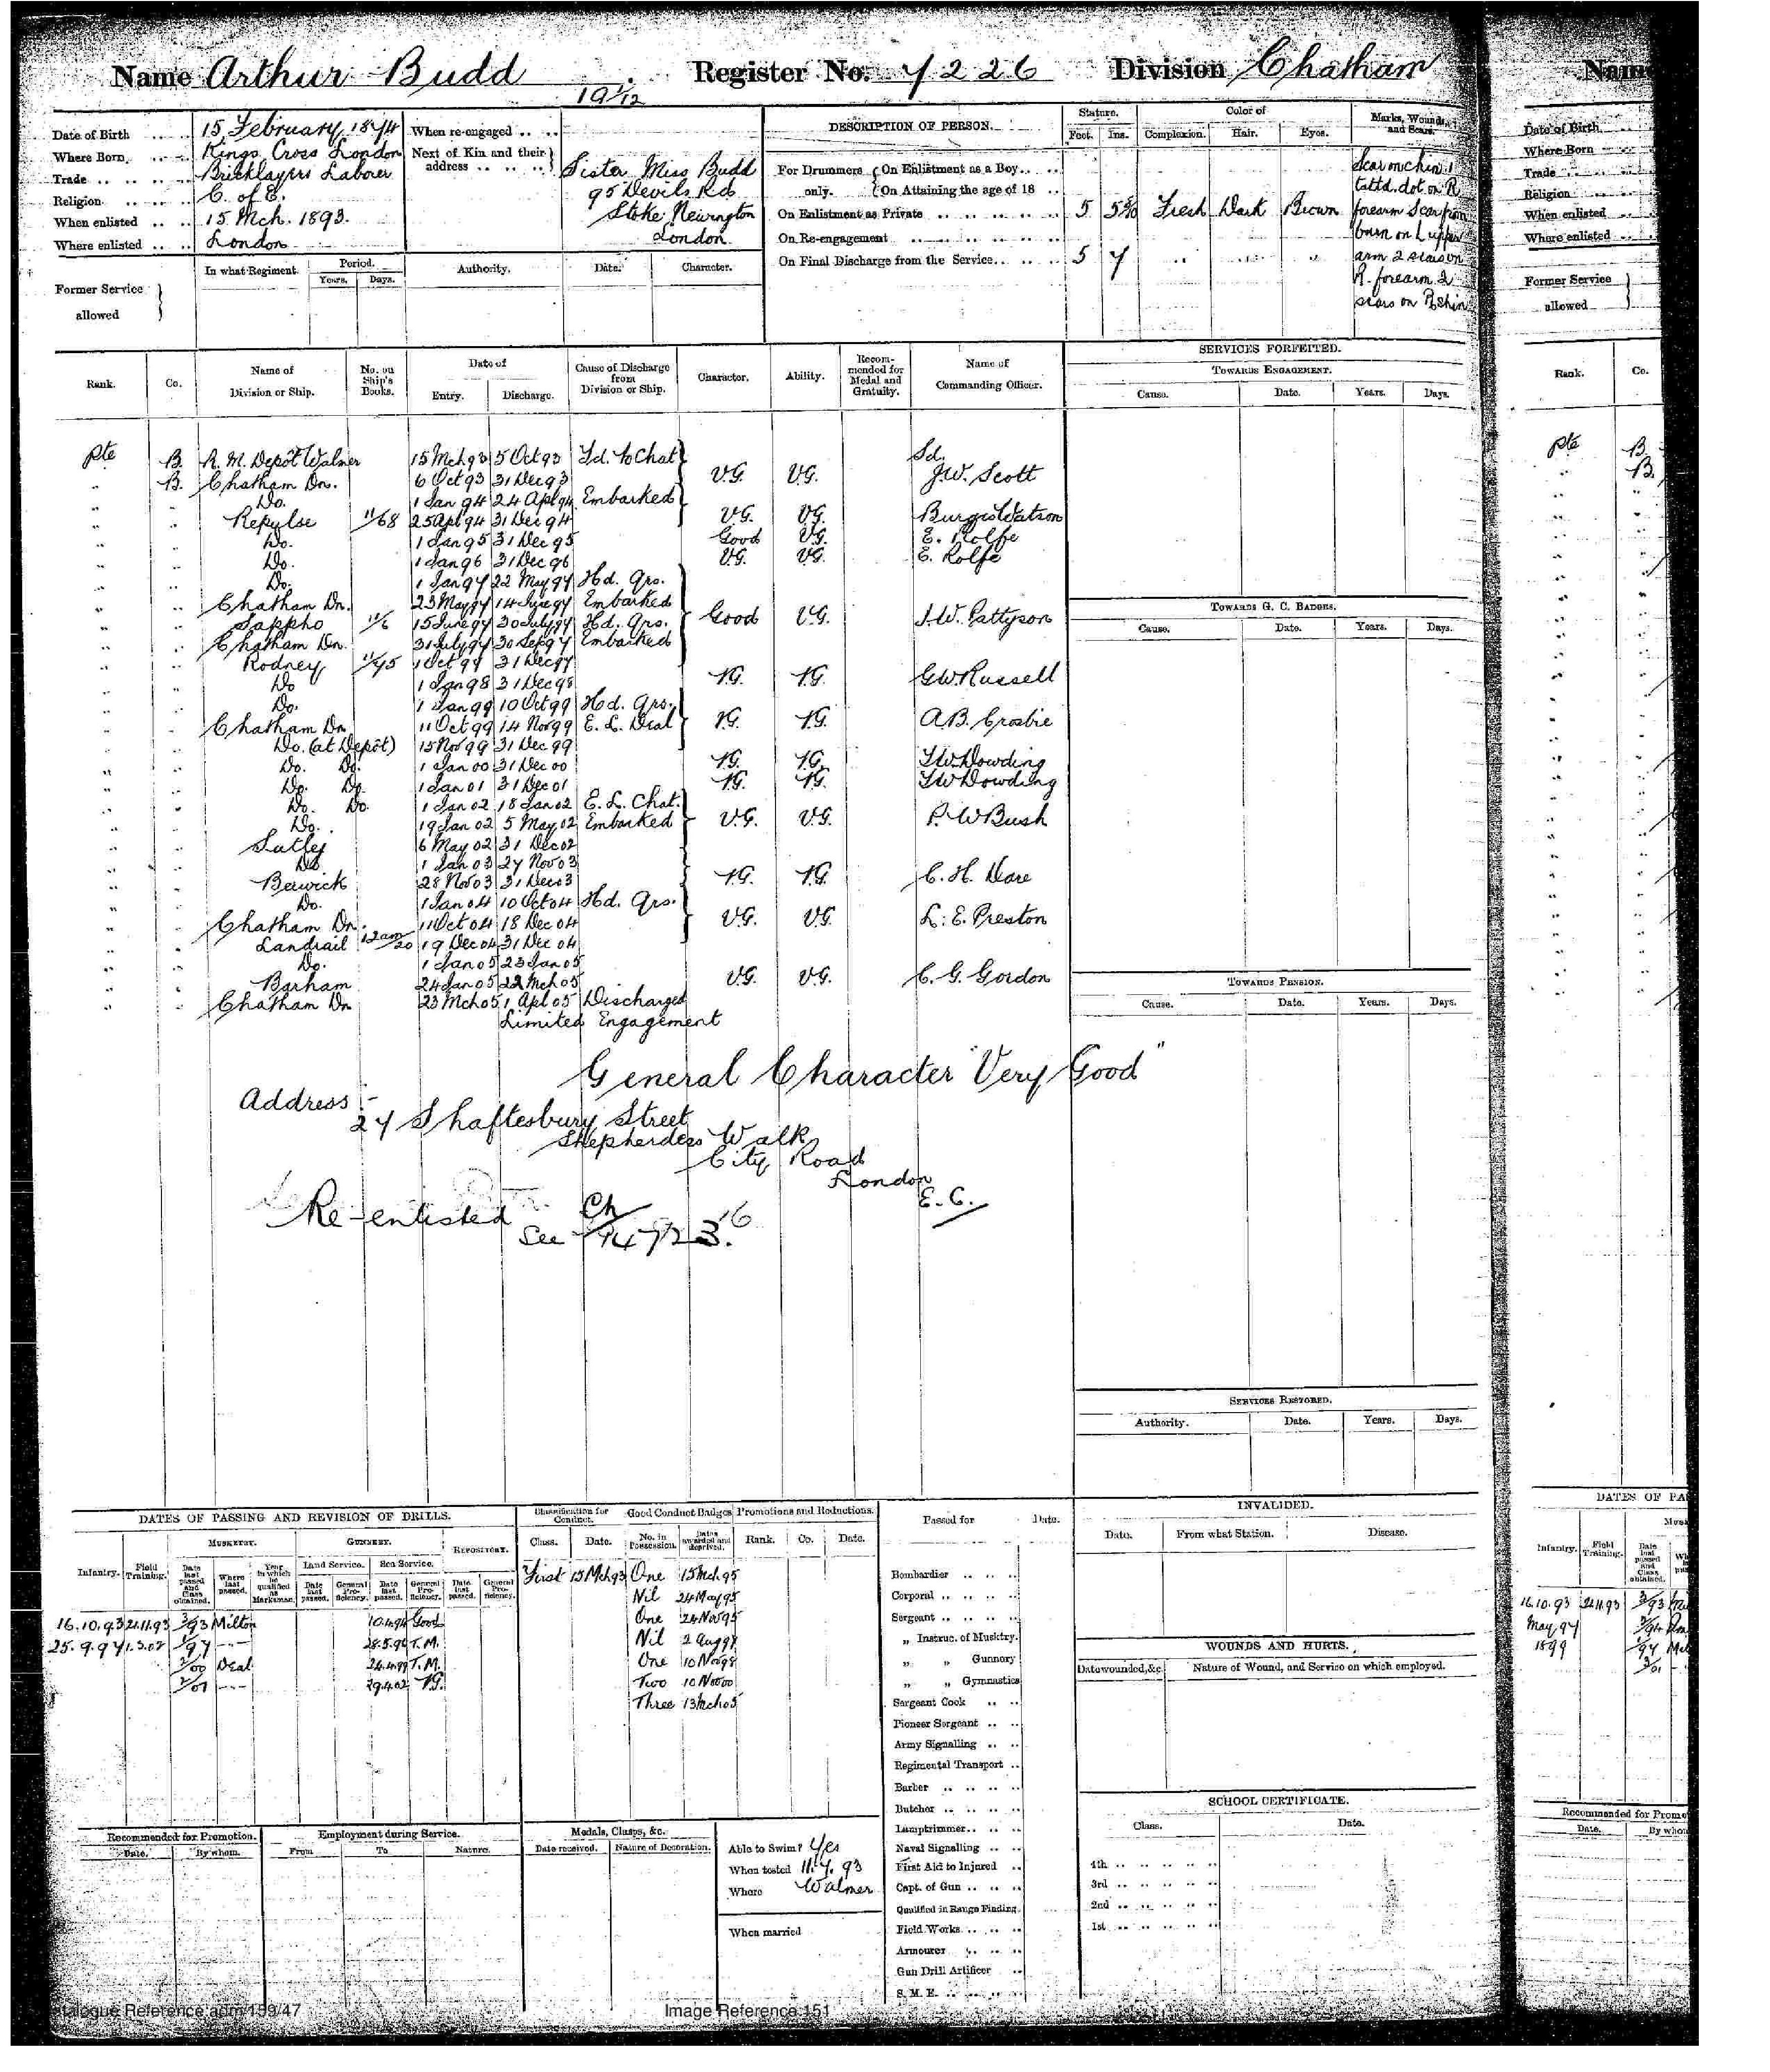 Name Arthur Budd Register No. 7226 Division Chatham
19 1/12
Date of Birth 15 February 1874
Where Born Kings Cross London
Trade Bricklayers Laborer
Religion C. of E.
When enlisted 15 Mch. 1893.
Where enlisted London
When re-engaged
Next of Kin and their address
Sister Miss Budd
95 Devils Rd.
Stoke Newington
London
DESCRIPTION OF PERSON.
Stature. Color of Marks, Wounds, and Scars.
Feet. Ins. Complexion. Hair. Eyes.
For Drummers only. On Enlistment as a Boy
On Attaining the age of 18
On Enlistment as Private 5 5 Fresh Dark Brown
On Re-engagement
On Final Discharge from the Service 5 7
Scar on chin 1
tattd. dot on R
forearm Scar from
burn on L upper
arm 2 scars on
R. forearm 2
scars on R shin
Former Service allowed
In what Regiment. Period. Authority. Date. Character.
Years. Days.
Rank. Co. Name of Division or Ship. No. on Ship's Books. Date of Cause of Discharge from Division or Ship. Character. Ability. Recommended for Medal and Gratuity. Name of Commanding Officer.
Entry. Discharge.
SERVICES FORFEITED.
TOWARDS ENGAGEMENT.
Cause. Date. Years. Days.
Pte B. R. M. Depôt Walmer 15 Mch 93 5 Oct 93 Td. to Chat Sd.
" B. Chatham Dn. 6 Oct 93 31 Dec 93 V.G. V.G. J.W. Scott
" " Do. 1 Jan 94 24 Apl 94 Embarked
" " Repulse 11/68 25 Apl 94 31 Dec 94 V.G. V.G. Burges Watson
" " Do. 1 Jan 95 31 Dec 95 Good V.G. E. Rolfe
" " Do. 1 Jan 96 31 Dec 96 V.G. V.G. E. Rolfe
" " Do. 1 Jan 97 22 May 97 Hd. Qrs.
" " Chatham Dn. 23 May 97 14 June 97 Embarked
" " Sappho 11/6 15 June 97 30 July 97 Hd. Qrs. Good V.G. J.W. Pattyson
" " Chatham Dn. 31 July 97 30 Sep 97 Embarked
" " Rodney 11/75 1 Oct 97 31 Dec 97
" " Do 1 Jan 98 31 Dec 98 V.G. V.G. G W Russell
" " Do. 1 Jan 99 10 Oct 99 Hd. Qrs.
" " Chatham Dn 11 Oct 99 14 Nov 99 E. L. Deal V.G. V.G. A.B. Crosbie
" " Do. (at Depôt) 15 Nov 99 31 Dec 99
" " Do. Do. 1 Jan 00 31 Dec 00 V.G. V.G. T W Dowding
" " Do. Do. 1 Jan 01 31 Dec 01 V.G. V.G. T W Dowding
" " Do. Do. 1 Jan 02 18 Jan 02 E. L. Chat.
" " Do. 19 Jan 02 5 May 02 Embarked V.G. V.G. P. W Bush
" " Sutlej 6 May 02 31 Dec 02
" " Do 1 Jan 03 27 Nov 03
" " Berwick 28 Nov 03 31 Dec 03 V.G. V.G. C. H. Dare
" " Do. 1 Jan 04 10 Oct 04 Hd. Qrs.
" " Chatham Dn. 11 Oct 04 18 Dec 04 V.G. V.G. L. E. Preston
" " Landrail 19 Dec 04 31 Dec 04
" " Do. 1 Jan 05 23 Jan 05
" " Barham 24 Jan 05 22 Mch 05 V.G. V.G. C. G. Gordon
" " Chatham Dn 23 Mch 05 1 Apl 05 Discharged
Limited Engagement
General Character "Very Good"
Address:-
27 Shaftesbury Street
Shepherdess Walk
City Road
London
E. C.
Re-enlisted See Ch
TOWARDS G. C. BADGES.
Cause. Date. Years. Days.
TOWARDS PENSION.
Cause. Date. Years. Days.
SERVICES RESTORED.
Authority. Date. Years. Days.
DATES OF PASSING AND REVISION OF DRILLS.
Infantry. Field Training. MUSKETRY. GUNNERY. REPOSITORY.
Date last passed and Class obtained. Where last passed. Year in which he qualified as Marksman. Land Service. Sea Service.
Date last passed. General Proficiency. Date last passed. General Proficiency. Date last passed. General Proficiency.
16.10.93 21.11.93 3/93 Milton 10.4.94 Good
25.9.97 1.3.02 1/97 --- 28.5.96 T.M.
2/00 Deal 26.4.99 T.M.
2/01 --- 29.4.02 V.G.
Classification for Conduct. Good Conduct Badges Promotions and Reductions.
Class. Date. No. in Possession. Dates awarded and deprived. Rank. Co. Date.
First 15 Mch 93 One 15 Mch 95
Nil 24 May 95
One 24 Nov 95
Nil 2 Aug 97
One 10 Nov 98
Two 10 Nov 00
Three 13 Mch 05
Passed for Date.
Bombardier
Corporal
Sergeant
" Instruc. of Musktry.
" " Gunnery
" " Gymnastics
Sergeant Cook
Pioneer Sergeant
Army Signalling
Regimental Transport
Barber
Butcher
Lamptrimmer
Naval Signalling
First Aid to Injured
Capt. of Gun
Qualified in Range Finding
Field Works
Armourer
Gun Drill Artificer
S. M. E.
INVALIDED.
Date. From what Station. Disease.
WOUNDS AND HURTS.
Date wounded, &c. Nature of Wound, and Service on which employed.
SCHOOL CERTIFICATE.
Class. Date.
4th
3rd
2nd
1st
Recommended for Promotion. Employment during Service. Medals, Clasps, &c.
Date. By whom. From To Nature. Date received. Nature of Decoration.
Able to Swim? Yes
When tested 11.7.93
Where Walmer
When married
Catalogue Reference:adm/159/47 Image Reference:151
Name
Date of Birth
Where Born
Trade
Religion
When enlisted
Where enlisted
Former Service allowed
Rank. Co.
Pte B
B.
DATES OF PA
Infantry. Field Training. Date last passed and Class obtained.
16.10.93 21.11.93 3/93
May 97
1899
Recommended for Promo
Date. By whom